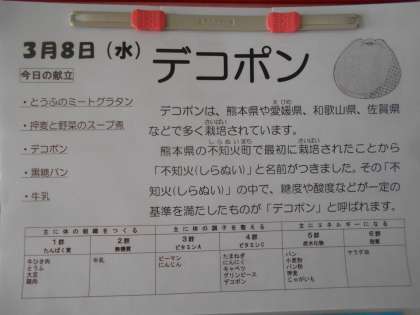 3月8日（水）
デコポン
今日の献立
・とうふのミートグラタン
・押麦と野菜のスープ煮
・デコポン
・黒糖パン
・牛乳
デコポンは、熊本県や愛媛県、和歌山県、佐賀県
などで多く栽培されています。
熊本県の不知火町で最初に栽培されたことから
「不知火(しらぬい)」と名前がつきました。その「不
知火(しらぬい)」の中で、糖度や酸度などが一定の
基準を満たしたものが「デコポン」と呼ばれます。
主に体の組織をつくる 主に体の調子を整える 主にエネルギーになる
1群 2群 3群 4群 5群 6群
たんぱく質 無機質 ビタミンA ビタミンC 炭水化物 脂質
牛ひき肉 牛乳 ピーマン たまねぎ パン サラダ油
とうふ にんじん にんにく 小麦粉
大豆 キャベツ パン粉
鶏肉 グリンピース 押麦
デコポン じゃがいも